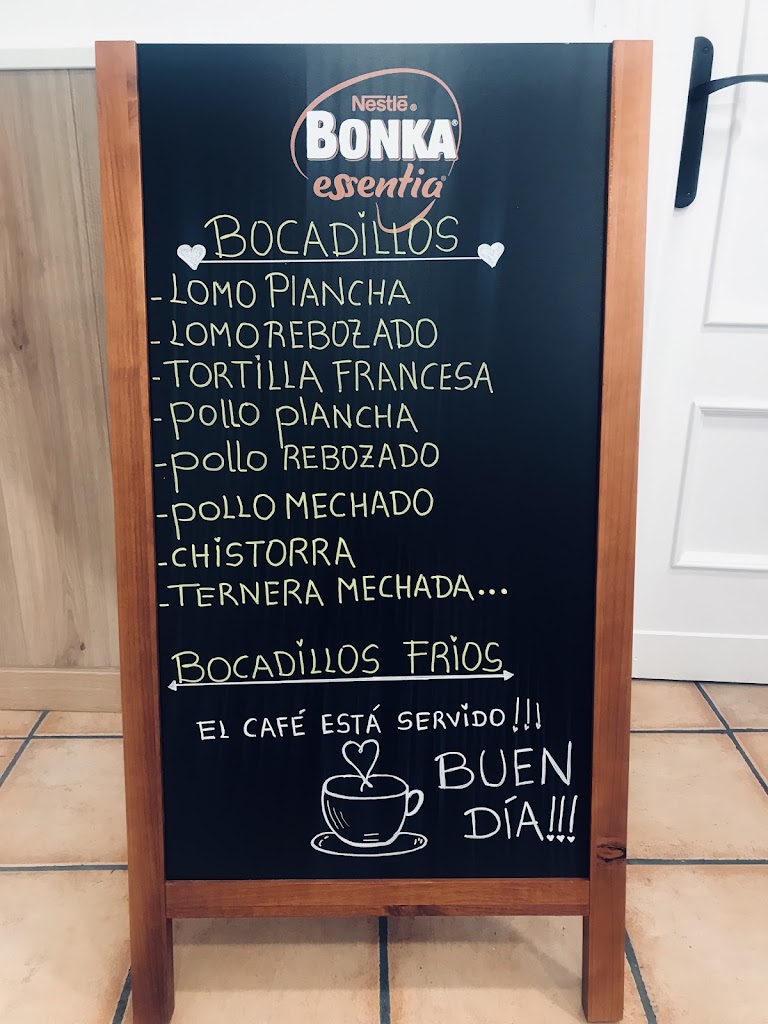 Nestlé®
BONKA®
essentia®
BOCADILLOS
- LOMO PLANCHA
- LOMO REBOZADO
- TORTILLA FRANCESA
- POLLO PLANCHA
- POLLO REBOZADO
- POLLO MECHADO
- CHISTORRA
- TERNERA MECHADA...
BOCADILLOS FRIOS
EL CAFÉ ESTÁ SERVIDO!!!
BUEN
DÍA!!!